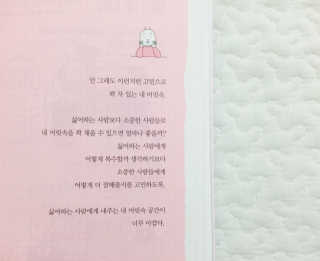 안 그래도 이런저런 고민으로
꽉 차 있는 내 머릿속.
싫어하는 사람보다 소중한 사람들로
내 머릿속을 꽉 채울 수 있으면 얼마나 좋을까?
싫어하는 사람에게
어떻게 복수할까 생각하기보다
소중한 사람들에게
어떻게 더 잘해줄지를 고민하도록.
싫어하는 사람에게 내주는 내 머릿속 공간이
너무 아깝다.